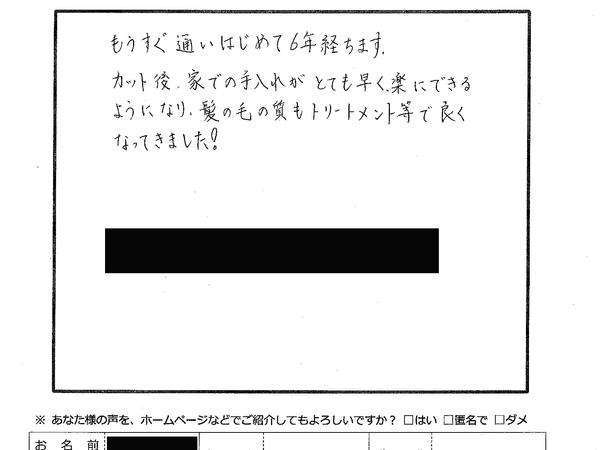 もうすぐ通いはじめて6年経ちます.
カット後.家での手入れがとても早く.楽にできる
ようになり.髪の毛の質もトリートメント等で良く
なってきました!
※ あなた様の声を、ホームページなどでご紹介してもよろしいですか? □はい □匿名で □ダメ
お 名 前